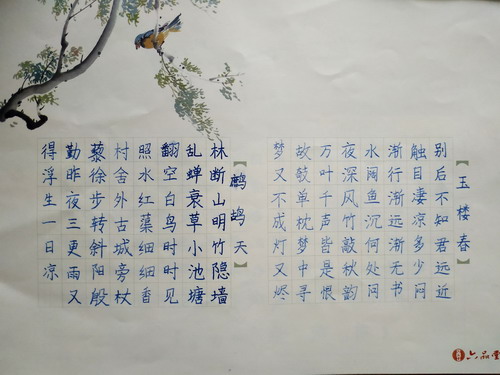 【玉楼春】
别后不知君远近
触目凄凉多少闷
渐行渐远渐无书
水阔鱼沉何处问
夜深风竹敲秋韵
万叶千声皆是恨
故欹单枕梦中寻
梦又不成灯又烬
【鹧鸪天】
林断山明竹隐墙
乱蝉衰草小池塘
翻空白鸟时时见
照水红蕖细细香
村舍外古城旁杖
藜徐步转斜阳殷
勤昨夜三更雨又
得浮生一日凉
六品堂